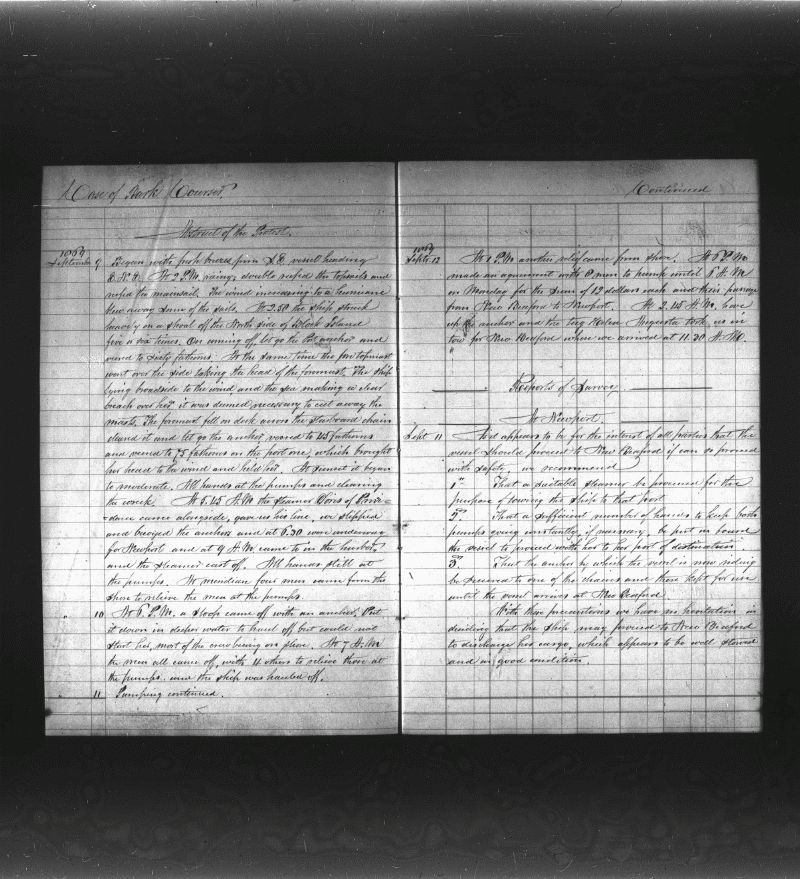 Case of Bark "Courser"
Abstract of the Protest.
1869
September 9 Begun with fresh breeze from S.E. vessel heading
At 2 P.M. rainy, double reefed the topsails and
reefed the mainsail. The wind increasing to a hurricane
blew away some of the sails. At 2.50 the ship struck
heavily on a shoal off the North side of Block Island
five or six times. On coming off, let go the Port anchor and
veered to sixty fathoms. At the same time the fore topmast
went over the side taking the head of the foremast. The ship
lying broadside to the wind, and the sea making a clear
beach over her it was deemed necessary to cut away the
masts. The foremast fell on deck across the starboard chain
cleared it and let go the anchor, veered to 45 fathoms
and veered to 75 fathoms on the port one, which brought
her head to the wind and held her. At sunset it began
to moderate. All hands at the pumps and clearing
the wreck. At 5.45 A.M. the steamer Doris of Provi-
dence came alongside, gave us his line, we slipped
and buoyed the anchors and at 6.30 was underway
for Newport and at 9 A.M. came to in the harbor,
and the steamer cast off. All hands still at
the pumps. At meridian four men came from the
shore to relieve the men at the pumps.
" 10 At 6 P.M. a sloop came off with an anchor. Put
it down in deeper water to haul off but could not
start her, most of the crew being on shore. At 7 A.M.
the men all came off, with 4 others to relieve those at
the pumps and the ship was hauled off.
" 11 Pumping continued.
Continued
1869
Sept. 12 At 1 P.M. another relief came from shore. At 6 P.M.
made an agreement with 8 men to pump until 8 A.M.
on Monday for the sum of 12 dollars each and their passage
from New Bedford to Newport. At 2.45 A.M. hove
up the anchor and the tug Helen Augusta took us in
tow for New Bedford where we arrived at 11.30 A.M.
Reports of Survey
At Newport.
Sept 11 It appears to be for the interest of all parties that the
vessel should proceed to New Bedford if can so proceed
with safety, we recommend
1st That a suitable steamer be procured for the
purpose of towing the ship to that port
2d. That a sufficient number of hands to keep both
pumps going constantly, if necessary, be put on board
the vessel to proceed with her to her port of destination.
3d. That the anchor by which the vessel is now riding
be secured to one of his chains and there kept for use
until the vessel arrives at New Bedford.
With these precautions we have no hesitation in
deciding that the ship may proceed to New Bedford
to discharge her cargo, which appears to be well stowed
and in good condition.